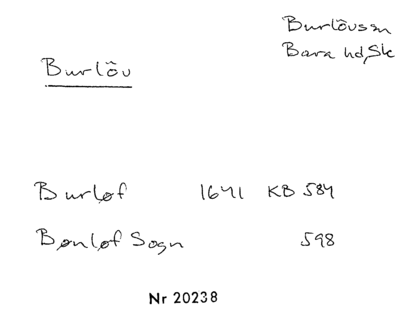 Burlöv
Burlövssn
Bara hd, Sk
Burløf 1641 KB 584
Bønløf Sogn 598
Nr 20238